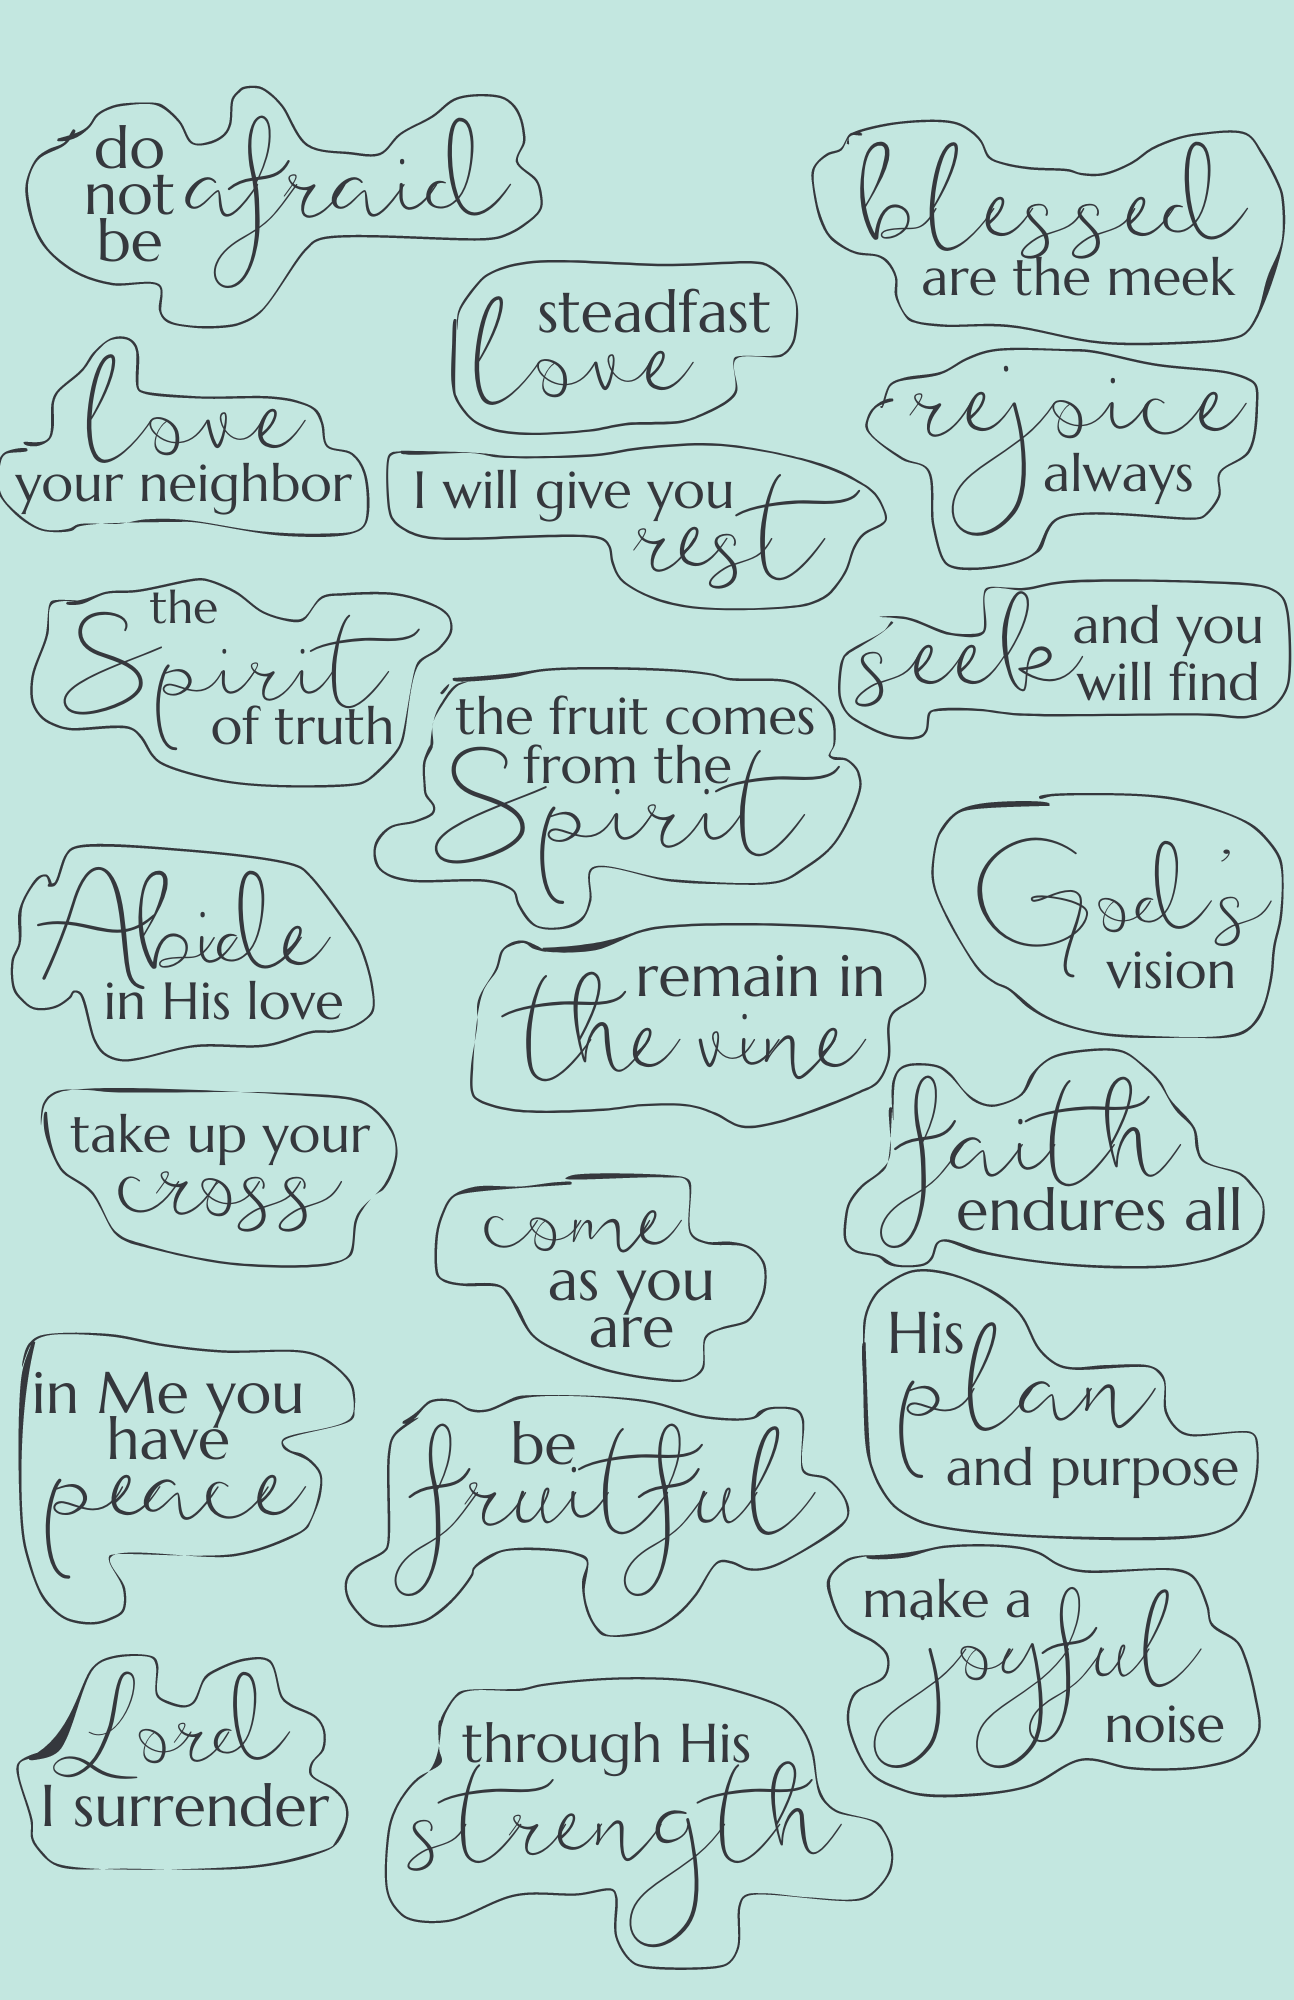 do
not
be
afraid
blessed
are the meek
steadfast
love
love
your neighbor
rejoice
always
I will give you
rest
the
Spirit
of truth
seek
and you
will find
the fruit comes
from the
Spirit
God's
vision
Abide
in His love
remain in
the vine
faith
endures all
take up your
cross
come
as you
are
His
plan
and purpose
in Me you
have
peace
be
fruitful
make a
joyful
noise
Lord
I surrender
through His
strength